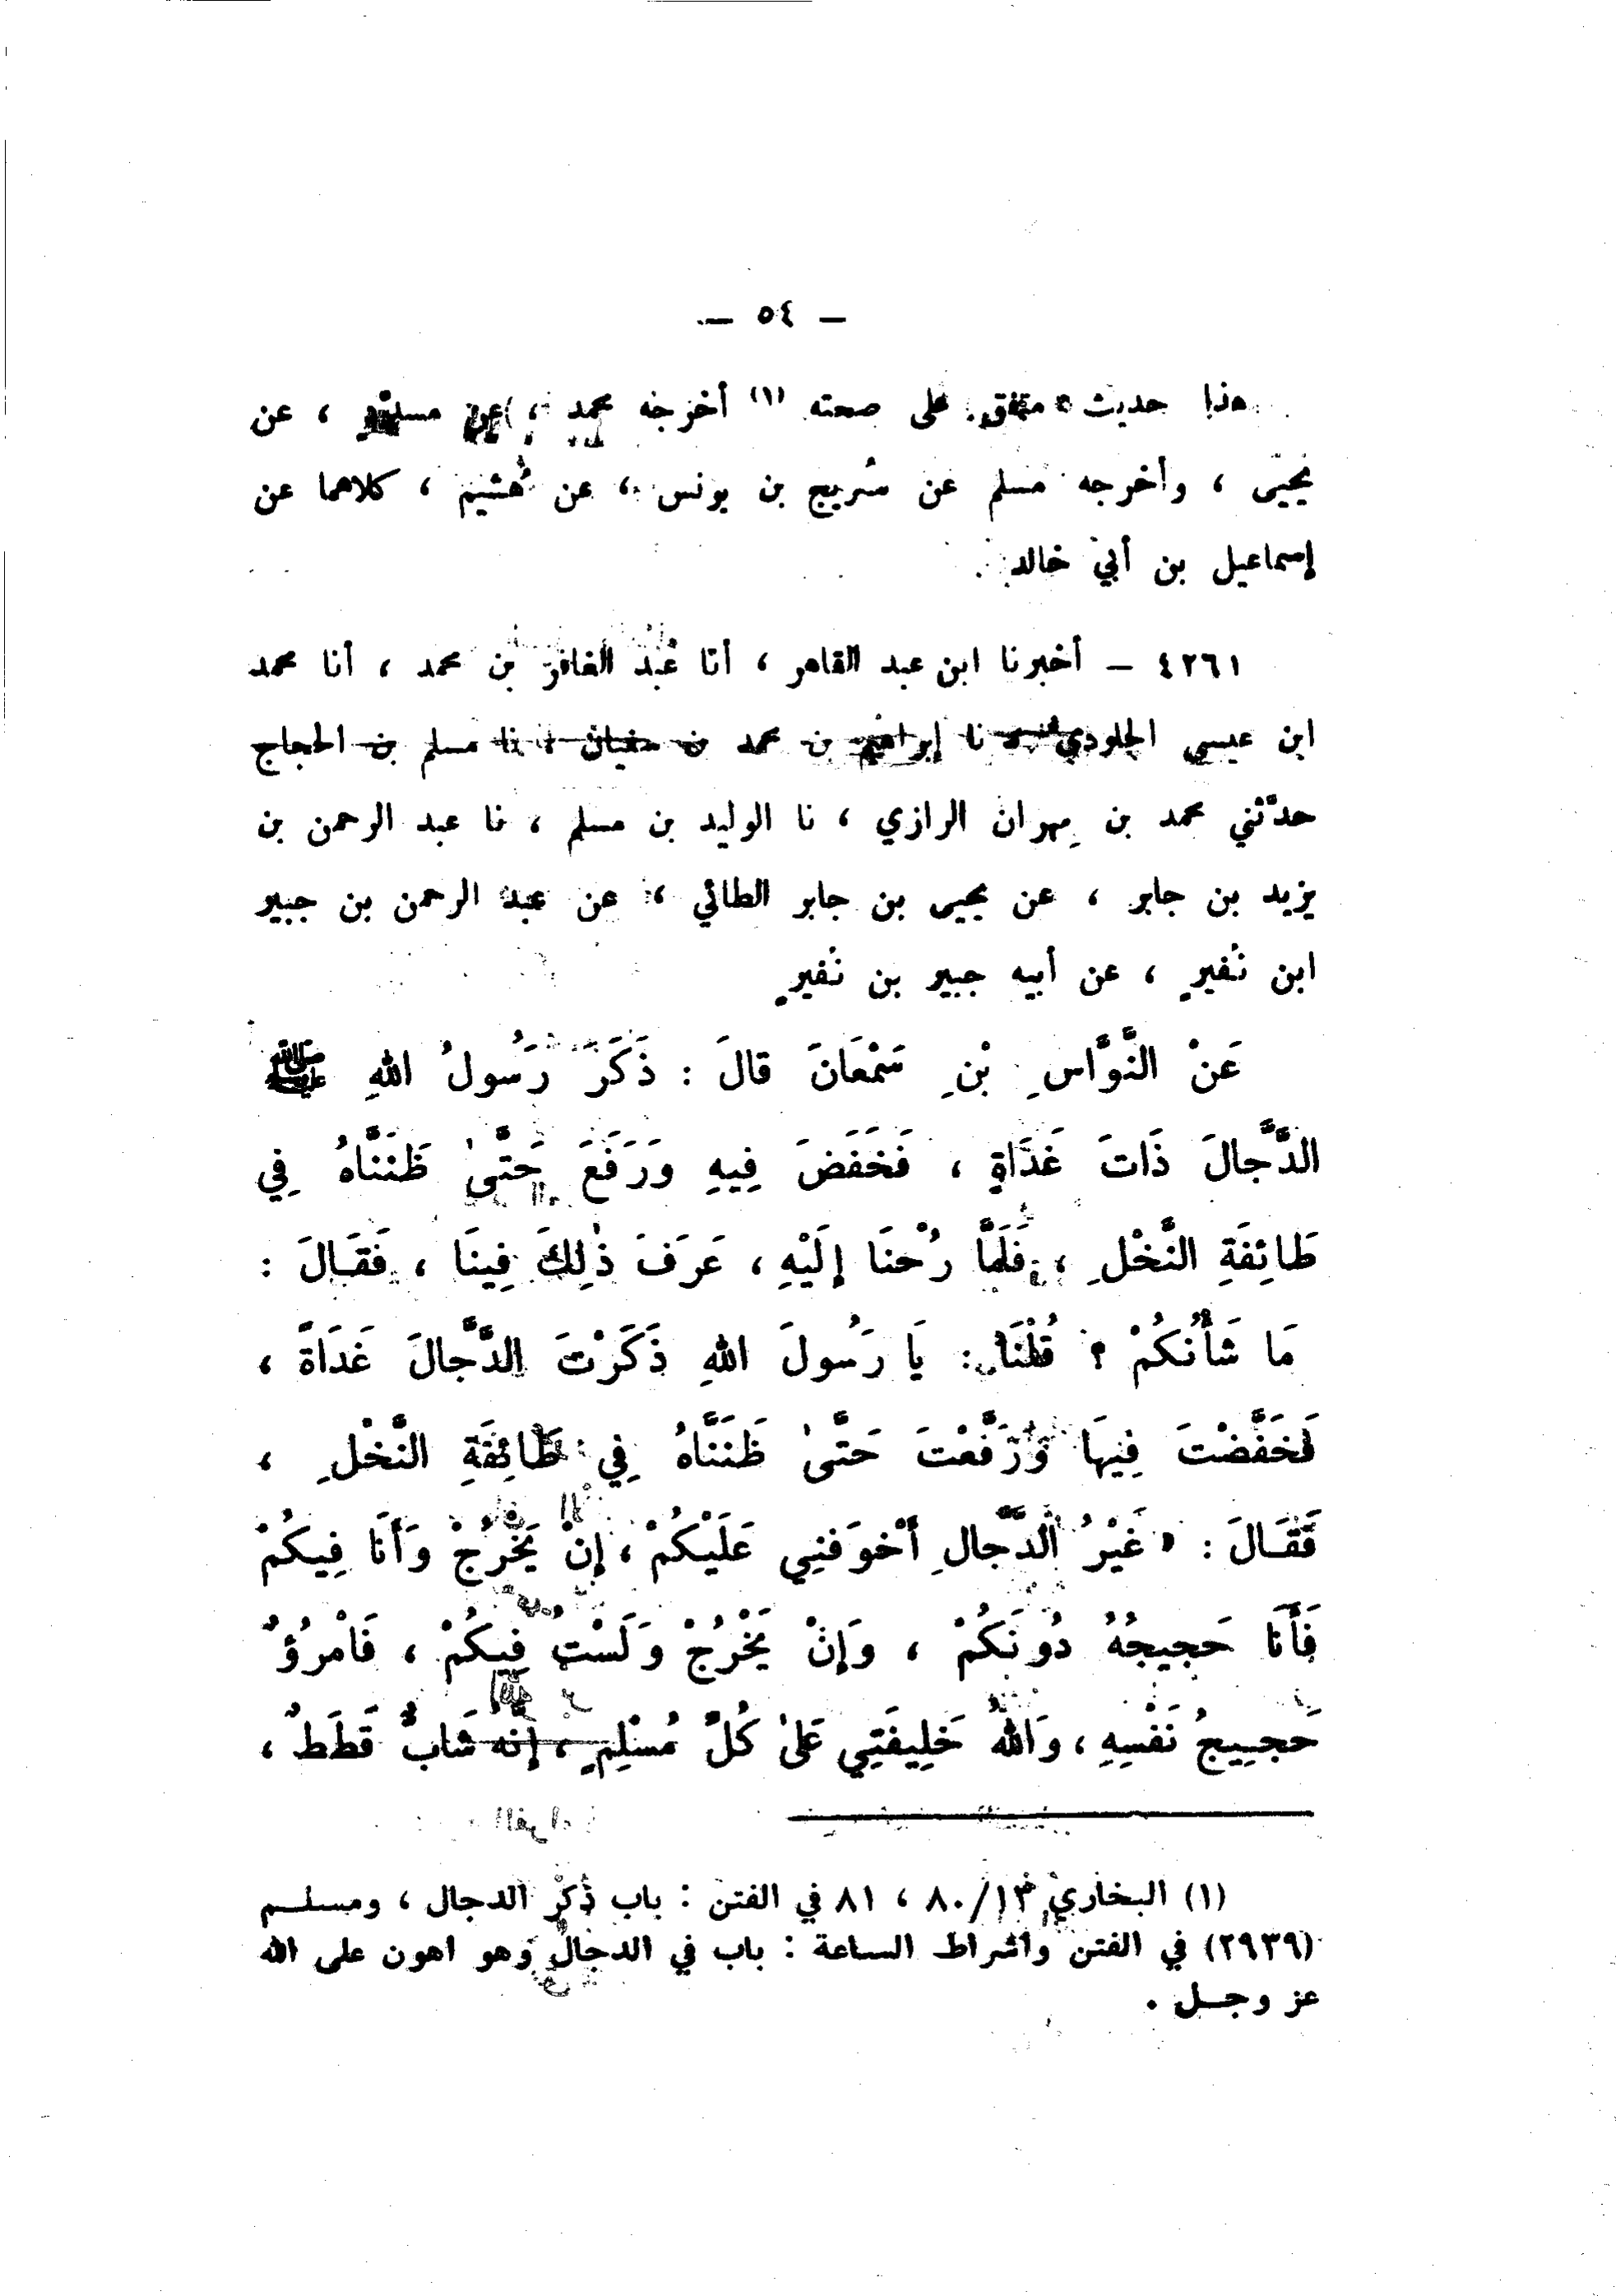 — ٥٤ —
هذا حديث متفق على صحته (١) أخرجه محمد ، عن مسدد ، عن
يحيى ، وأخرجه مسلم عن سُريج بن يونس ، عن هُشيم ، كلاهما عن
إسماعيل بن أبي خالد .
٤٢٦١ — أخبرنا ابن عبد القاهر ، أنا عبد الغافر بن محمد ، أنا محمد
ابن عيسى الجلودي ، نا إبراهيم بن محمد بن سفيان ، نا مسلم بن الحجاج
حدّثني محمد بن مِهران الرازي ، نا الوليد بن مسلم ، نا عبد الرحمن بن
يزيد بن جابر ، عن يحيى بن جابر الطائي ، عن عبد الرحمن بن جبير
ابن نُفيرٍ ، عن أبيه جبير بن نُفيرٍ
عَنْ النَّوَّاسِ بْنِ سَمْعَانَ قالَ : ذَكَرَ رَسُولُ اللهِ ﷺ
الدَّجَّالَ ذَاتَ غَدَاةٍ ، فَخَفَضَ فِيهِ وَرَفَعَ حَتَّىٰ ظَنَنَّاهُ فِي
طَائِفَةِ النَّخْلِ ، فَلَمَّا رُحْنَا إِلَيْهِ ، عَرَفَ ذٰلِكَ فِينَا ، فَقَالَ :
مَا شَأْنُكُمْ ؟ قُلْنَا : يَا رَسُولَ اللهِ ذَكَرْتَ الدَّجَّالَ غَدَاةً ،
فَخَفَّضْتَ فِيهَا وَرَفَّعْتَ حَتَّىٰ ظَنَنَّاهُ فِي طَائِفَةِ النَّخْلِ ،
فَقَالَ : « غَيْرُ الدَّجَّالِ أَخْوَفَنِي عَلَيْكُمْ ، إِنْ يَخْرُجْ وَأَنَا فِيكُمْ
فَأَنَا حَجِيجُهُ دُونَكُمْ ، وَإِنْ يَخْرُجْ وَلَسْتُ فِيكُمْ ، فَامْرُؤٌ
حَجِيجُ نَفْسِهِ ، وَاللهُ خَلِيفَتِي عَلىٰ كُلِّ مُسْلِمٍ ، إِنَّهُ شَابٌّ قَطَطٌ ،
(١) البخاري ١٣/٨٠ ، ٨١ في الفتن : باب ذكر الدجال ، ومسلم
(٢٩٣٩) في الفتن واشراط الساعة : باب في الدجال وهو اهون على الله
عز وجل .